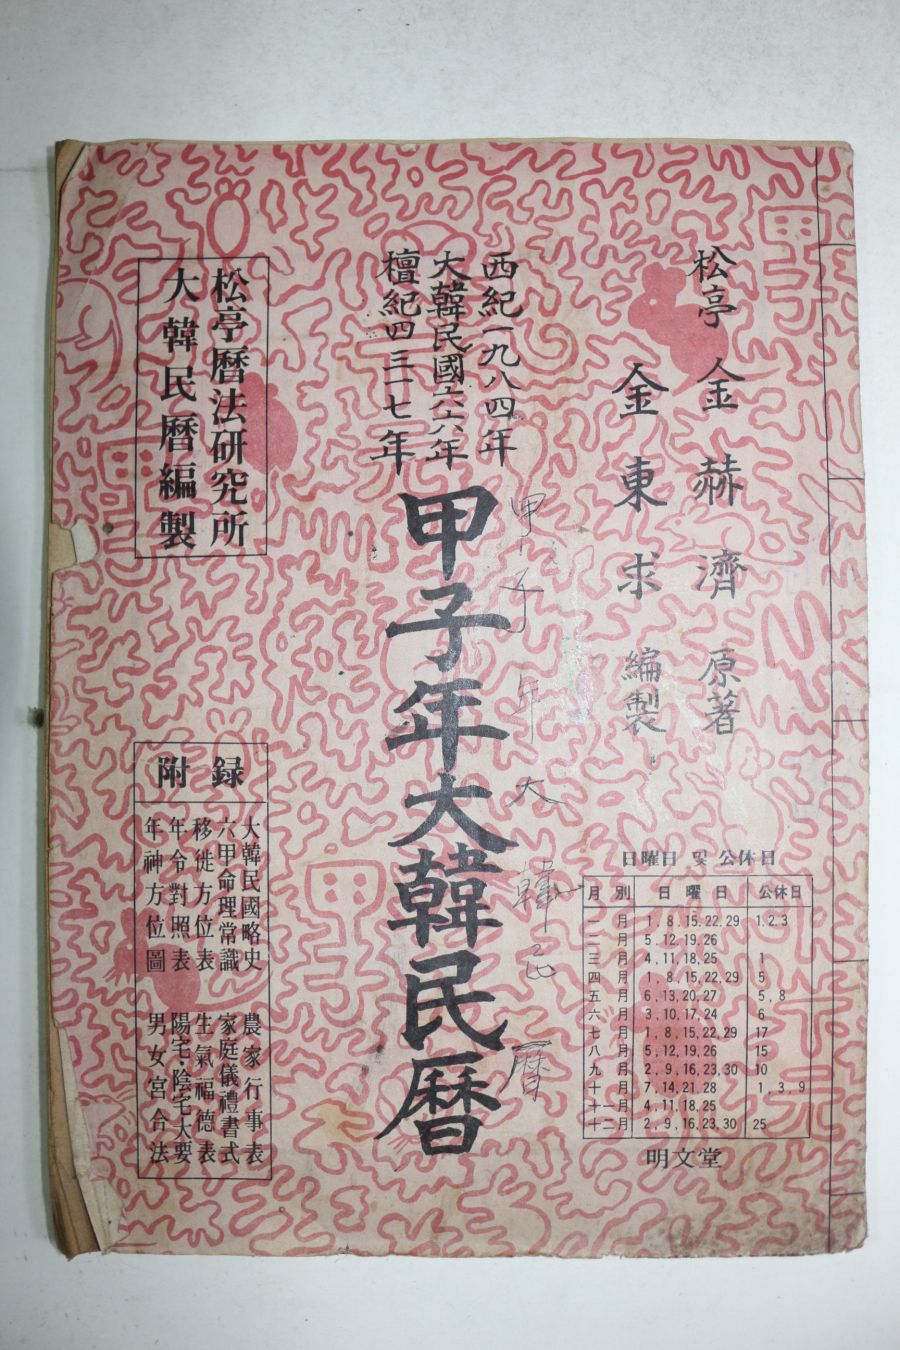 松亭 金赫濟 原著
金東求 編製
西紀一九八四年
大韓民國六六年
檀紀四三一七年
甲子年大韓民曆
甲子年大韓民曆
松亭曆法研究所
大韓民曆編製
附錄
大韓民國略史 農家行事表
六甲命理常識 家庭儀禮書式
移徙方位表 生氣福德表
年令對照表 陽宅·陰宅大要
年神方位圖 男女宮合法
日曜日 및 公休日
月別 日曜日 公休日
一月 1, 8, 15, 22, 29 1, 2, 3
二月 5, 12, 19, 26
三月 4, 11, 18, 25 1
四月 1, 8, 15, 22, 29 5
五月 6, 13, 20, 27 5, 8
六月 3, 10, 17, 24 6
七月 1, 8, 15, 22, 29 17
八月 5, 12, 19, 26 15
九月 2, 9, 16, 23, 30 10
十月 7, 14, 21, 28 1, 3, 9
十一月 4, 11, 18, 25
十二月 2, 9, 16, 23, 30 25
明文堂